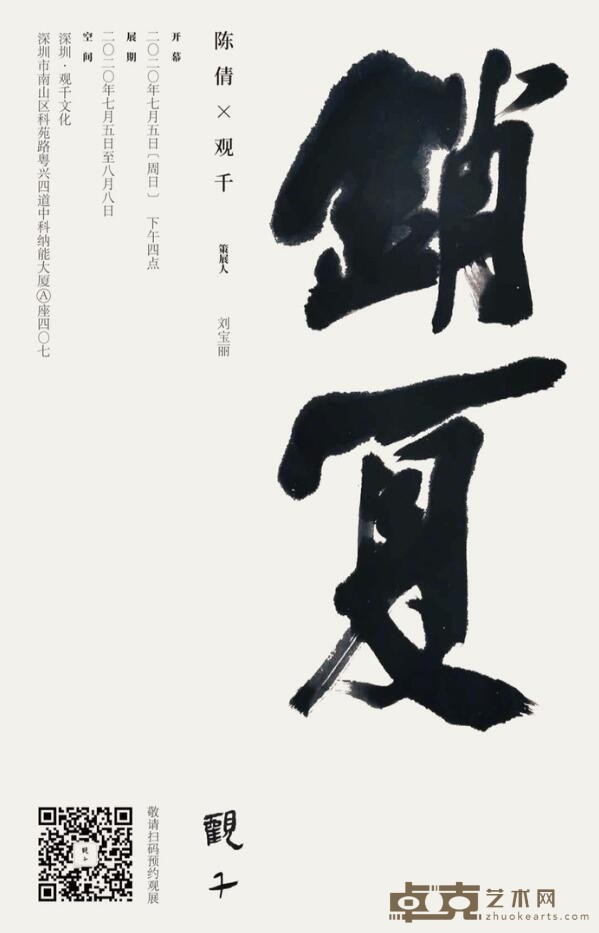 銷夏
陈倩×观千
策展人
刘宝丽
开幕
二〇二〇年七月五日〔周日〕 下午四点
展期
二〇二〇年七月五日至八月八日
空间
深圳·观千文化
深圳市南山区科苑路粤兴四道中科纳能大厦Ⓐ座四〇七
觀千
敬请扫码预约观展
觀千
卓克艺术网
zhuokearts.com